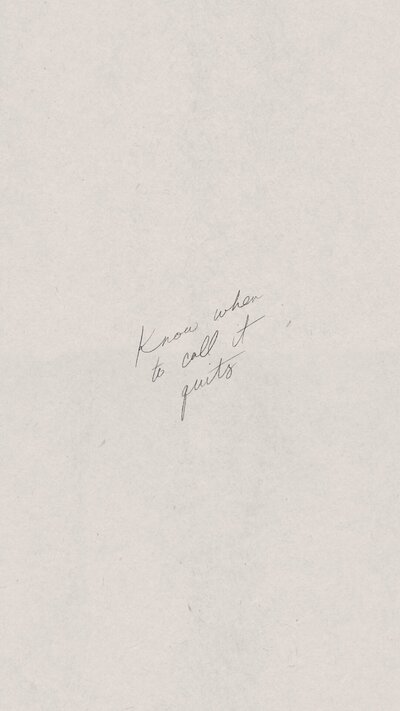 Know when
to call it
quits